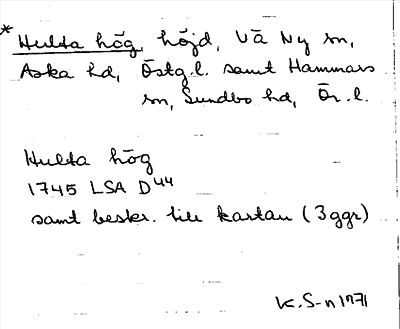 * Hulta hög, höjd, Vä Ny sn,
Aska hd, Östg.l. samt Hammars
sn, Sundbo hd, Ör.l.
Hulta hög
1745 LSA D44
samt beskr. till kartan (3 ggr)
K.S-n 1971